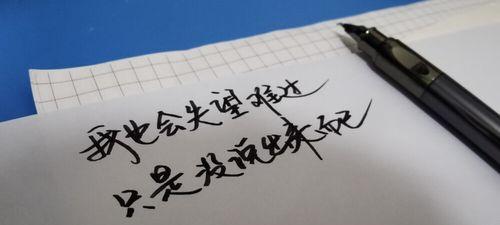 我也会失望难过
只是没说出来而已